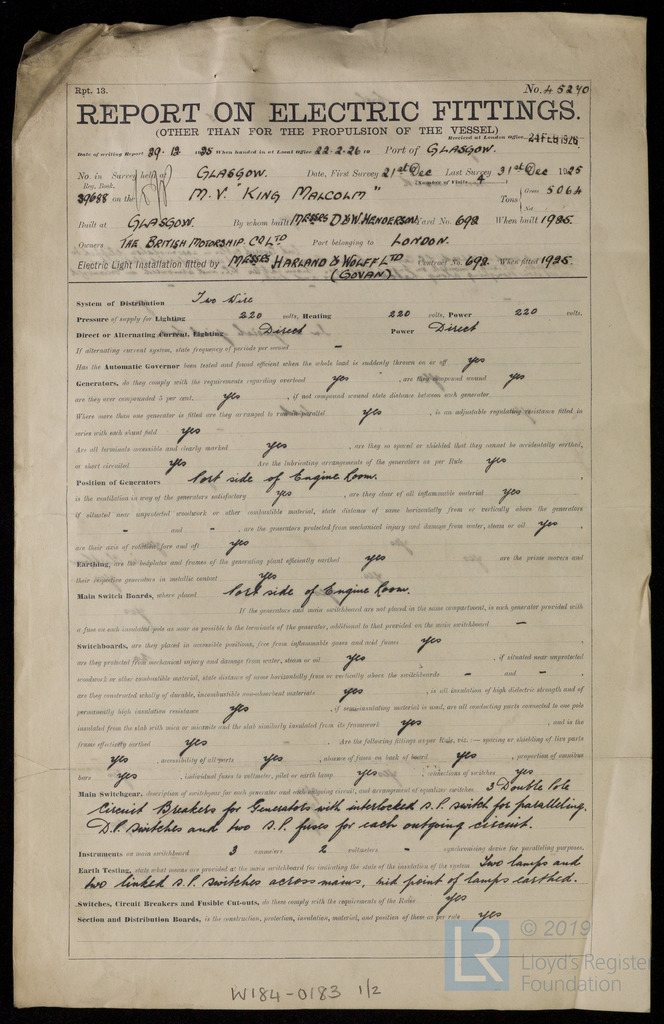 Rpt. 13.
No. 45240
REPORT ON ELECTRIC FITTINGS.
(OTHER THAN FOR THE PROPULSION OF THE VESSEL)
Received at London Office 24 FEB 1926
Date of writing Report 29-12 1925 When handed in at Local Office 22-2-26 19 Port of GLASGOW.
No. in Survey held at GLASGOW. Date, First Survey 21st Dec Last Survey 31st Dec 1925
Reg. Book. (Number of Visits 4)
39688 on the M.V. "KING MALCOLM" Tons Gross 5064
Net
Built at GLASGOW. By whom built MESSRS D & W HENDERSON Yard No. 692 When built 1925.
Owners THE BRITISH MOTORSHIP CO LTD Port belonging to LONDON.
Electric Light Installation fitted by MESSRS HARLAND & WOLFF LTD Contract No. 692. When fitted 1925.
(GOVAN)
System of Distribution Two Wire
Pressure of supply for Lighting 220 volts, Heating 220 volts, Power 220 volts.
Direct or Alternating Current, Lighting Direct Power Direct
If alternating current system, state frequency of periods per second -
Has the Automatic Governor been tested and found efficient when the whole load is suddenly thrown on or off yes
Generators, do they comply with the requirements regarding overload yes , are they compound wound yes
are they over compounded 5 per cent. yes , if not compound wound state distance between each generator
Where more than one generator is fitted are they arranged to run in parallel yes , is an adjustable regulating resistance fitted in
series with each shunt field yes
Are all terminals accessible and clearly marked yes , are they so spaced or shielded that they cannot be accidentally earthed,
or short circuited yes Are the lubricating arrangements of the generators as per Rule yes
Position of Generators Port side of Engine Room.
is the ventilation in way of the generators satisfactory yes , are they clear of all inflammable material yes
if situated near unprotected woodwork or other combustible material, state distance of same horizontally from or vertically above the generators
- and - , are the generators protected from mechanical injury and damage from water, steam or oil yes ,
are their axis of rotation fore and aft yes
Earthing, are the bedplates and frames of the generating plant efficiently earthed yes are the prime movers and
their respective generators in metallic contact yes
Main Switch Boards, where placed Port side of Engine Room.
If the generators and main switchboard are not placed in the same compartment, is each generator provided with
a fuse on each insulated pole as near as possible to the terminals of the generator, additional to that provided on the main switchboard -
Switchboards, are they placed in accessible positions, free from inflammable gases and acid fumes yes ,
are they protected from mechanical injury and damage from water, steam or oil yes , if situated near unprotected
woodwork or other combustible material, state distance of same horizontally from or vertically above the switchboards - and - ,
are they constructed wholly of durable, incombustible non-absorbent materials yes , is all insulation of high dielectric strength and of
permanently high insulation resistance yes , if semi-insulating material is used, are all conducting parts connected to one pole
insulated from the slab with mica or micanite and the slab similarly insulated from its framework yes , and is the
frame effectively earthed yes . Are the following fittings as per Rule, viz.:— spacing or shielding of live parts
yes , accessibility of all parts yes , absence of fuses on back of board yes , proportion of omnibus
bars yes , individual fuses to voltmeter, pilot or earth lamp yes , connections of switches yes
Main Switchgear, description of switchgear for each generator and each outgoing circuit, and arrangement of equalizer switches 3 Double Pole
Circuit Breakers for Generators with interlocked S.P. switch for paralleling.
D.P. switches and two S.P. fuses for each outgoing circuit.
Instruments on main switchboard 3 ammeters 2 voltmeters - synchronising device for paralleling purposes.
Earth Testing, state what means are provided at the main switchboard for indicating the state of the insulation of the system Two lamps and
two linked S.P. switches across mains, mid point of lamps earthed.
Switches, Circuit Breakers and Fusible Cut-outs, do these comply with the requirements of the Rules yes
Section and Distribution Boards, is the construction, protection, insulation, material, and position of these as per rule yes
LR
© 2019
Lloyd's Register
Foundation
W184-0183 1/2